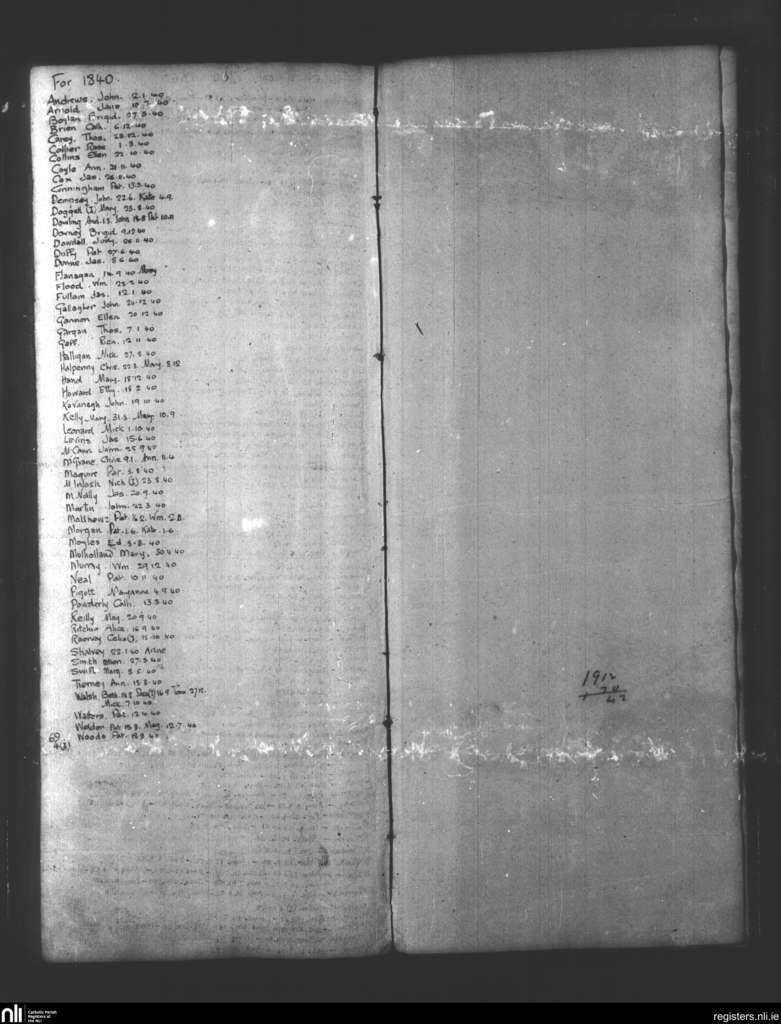 For 1840.
Andrews. John. 12.1.40
Arnold Jane 19.7.40
Boylan Brigid. 27.3.40
Brien Cath. 6.12.40
Carey. Thos. 28.12.40
Collier Rose 1.3.40
Collins Ellen 22.10.40
Coyle Ann. 21.11.40
Cox Jas. 26.11.40
Cunningham Pat. 13.3.40
Dempsey. John. 22.6. Kate 4.9.
Doggett (I) Mary. 25.8.40
Dowling And. 1.3. John 18.8 Pat 10.11
Downey Brigid 9.12.40
Dowdall. Judy. 26.11.40
Duffy Pat 27.6.40
Dunne Jas. 8.6.40
Flanagan 14.9.40 Mary
Flood. Wm. 23.2.40
Fullam Jas. 12.1.40
Gallagher John 20.12.40
Gannon Ellen 20.12.40
Gargan Thos. 7.1.40
Goff. Rich. 12.11.40
Halligan Nick. 27.8.40
Halpenny Chris. 22.3. Mary. 8.12
Hand Mary. 18.12.40
Howard Elty. 18.2.40
Kavanagh John. 19.10.40
Kelly Mary. 31.3. Mary. 10.9.
Leonard Mick 1.10.40
Levins Jas 15.6.40
McCann John. 25.9.40
McGrane Chris 9.1. Ann. 11.4
Maguire Pat. 2.8.40
McIntosh Nich (I) 23.8.40
McNally Jas. 20.9.40
Martin John. 22.3.40
Matthews Pat. 16.2. Wm. 2.8.
Morgan Pat. 1.6. Kate. 1.6.
Moyles Ed 3.8.40
Mulholland Mary. 30.4.40
Murray. Wm 29.12.40
Neal Pat. 10.11.40
Pigott Maryanne 4.9.40
Powderly Cath. 13.3.40
Reilly Mag. 20.9.40
Ritchin Alice. 16.9.40
Rooney Celia(I). 15.10.40
Shalvey 22.1.40 Anne
Smith Ellen. 27.3.40
Swift Marg. 3.5.40
Tierney Ann. 12.3.40
Walsh Beth. 14.3 16.9 Tom 27.12.
Mick. 7.10.40.
Waters. Pat. 12.4.40
Weldon Pat 18.3. Mag. 12.7.40
69 Woods Pat. 18.3.40
4(I)
1912
70
42
nli
Catholic Parish
Registers at
the NLI
registers.nli.ie